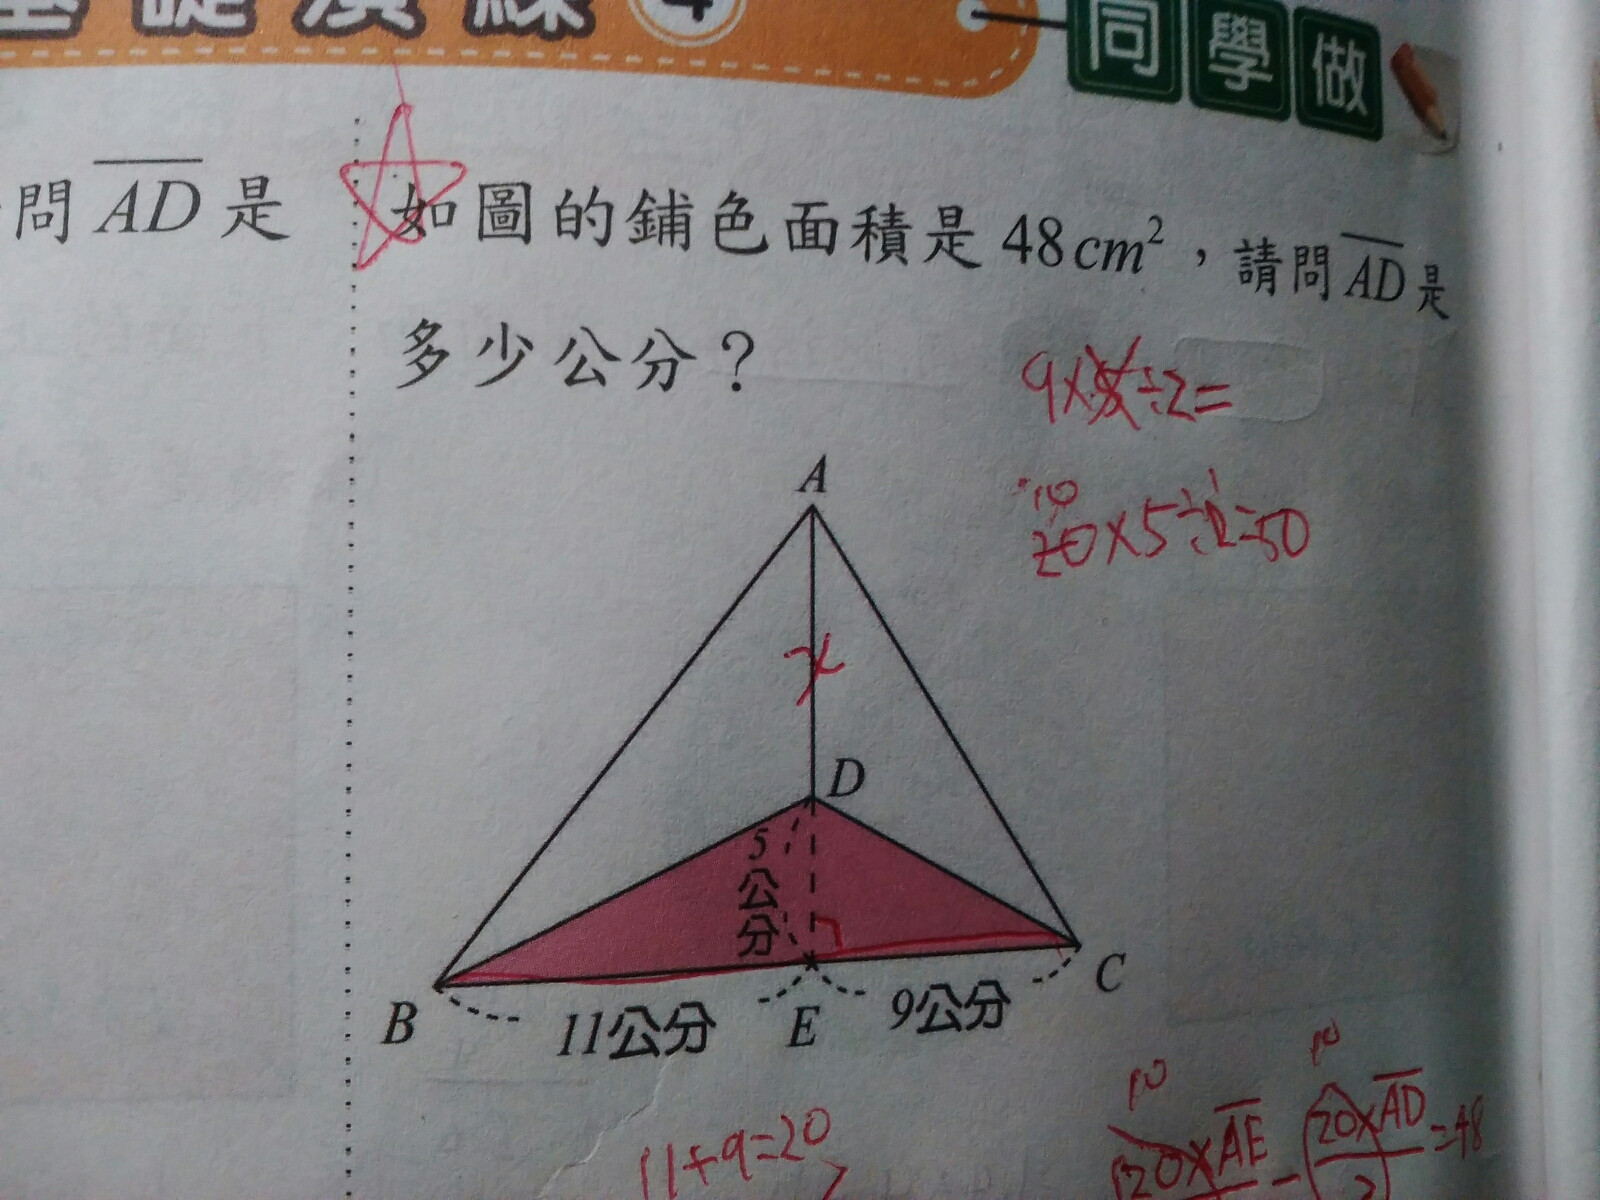 基礎演練 4
同學做
問 AD 是
如圖的鋪色面積是 48cm²，請問 AD 是
多少公分？
9×
÷2=
10
20×5÷2=50
A
x
D
5公分
B
11公分
E
9公分
C
11+9=20
10
20×AE
10
20×AD
2
=48